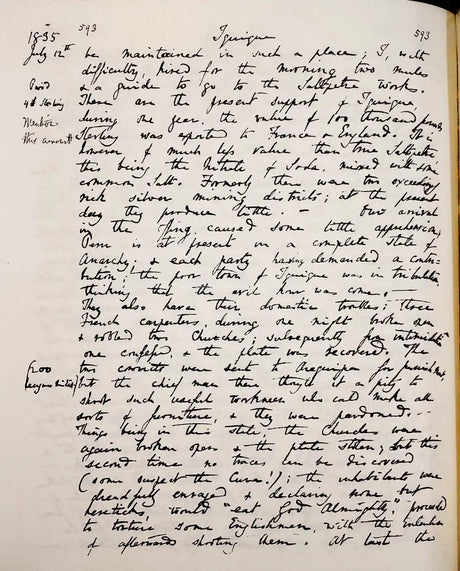 593
593
1835
Iquique
July 12th
be maintained in such a place; I, with
difficulty, hired for the morning two mules
& a guide to go to the Saltpetre works.
4£ Sterling
These are the present support of Iquique,
during one year, the value of 100 thousand pounds
Mention
Sterling was exported to France & England. It is
this amount
however of much less value than true Saltpetre,
this being the Nitrate of Soda, mixed with some
common Salt. Formerly there were two exceeding
rich silver mining districts; at the present
day they produce little. — Our arrival
in the offing caused some little apprehension;
Peru is at present in a complete state of
Anarchy; & each party having demanded a contri-
bution; the poor town of Iquique was in tribulation,
thinking that the evil hour was come.
They also have their domestic troubles; three
French carpenters, during one night broken open
& robbed two Churches; subsequently from intimidation
one confessed, & the plate was recovered. The
two convicts were sent to Arequipa for punishment,
200
but the chief man there thought it a pity to
shoot such useful workmen who could make all
sorts of furniture, & they were pardoned. —
Things being in this state, the Churches were
again broken open & the plate stolen; but this
second time no traces can be discovered
(some suspect the Cura!); the inhabitants were
dreadfully enraged & declaring none but
hereticks would "eat God Almighty", proceeded
to torture some Englishmen, with the intention
of afterwards shooting them. At last the